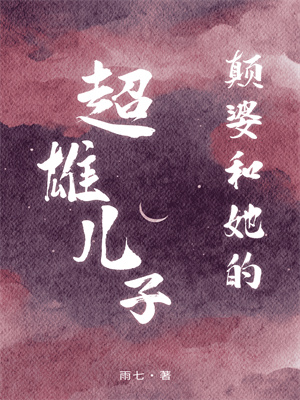 颠婆和她的
超雄儿子
雨七·著